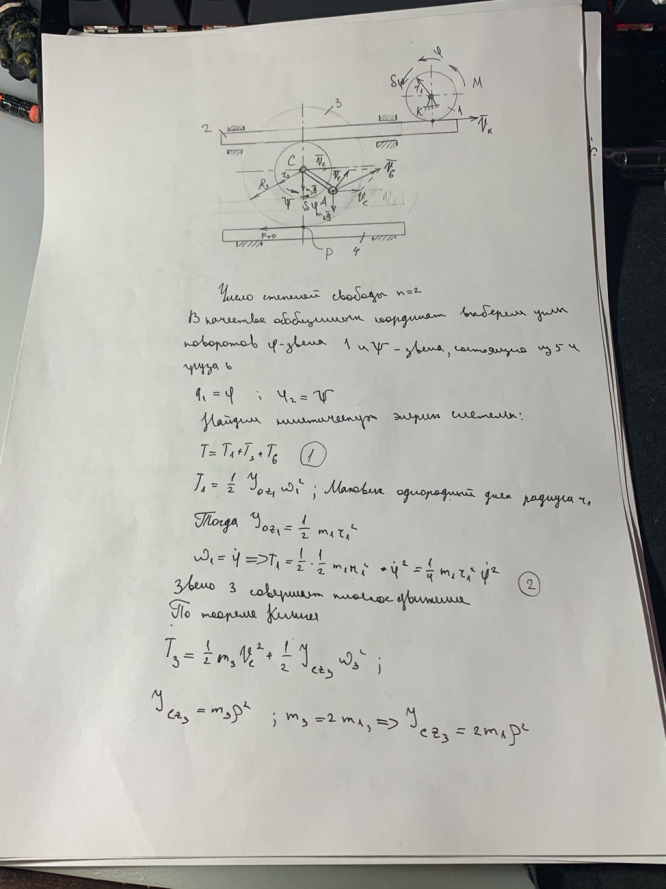 φ
δφ
M
r₁
K
1
V̄ₖ
3
2
C
V̄c
V̄б
r₃
R₃
ψ
A
V̄c
P
4
Fтр
Число степеней свободы n=2
В качестве обобщенных координат выберем углы
поворотов φ-звена 1 и ψ-звена, состоящего из 5 и
груза 6
q₁ = φ ; = ψ
Найдем кинетическую энергию системы:
T = T₁ + T₃ + T₆ (1)
T₁ = 1/2 Joz₁ ω₁² ; Маховик однородный диск радиуса r₁
Тогда Joz₁ = 1/2 m₁r₁²
ω₁ = φ̇ => T₁ = 1/2 · 1/2 m₁r₁² · φ̇² = 1/4 m₁r₁² φ̇² (2)
Звено 3 совершает плоское движение
По теореме Кёнига
T₃ = 1/2 m₃ Vc² + 1/2 Jcz₃ ω₃² ;
Jcz₃ = m₃ρ² ; m₃ = 2m₁, => Jcz₃ = 2m₁ρ²